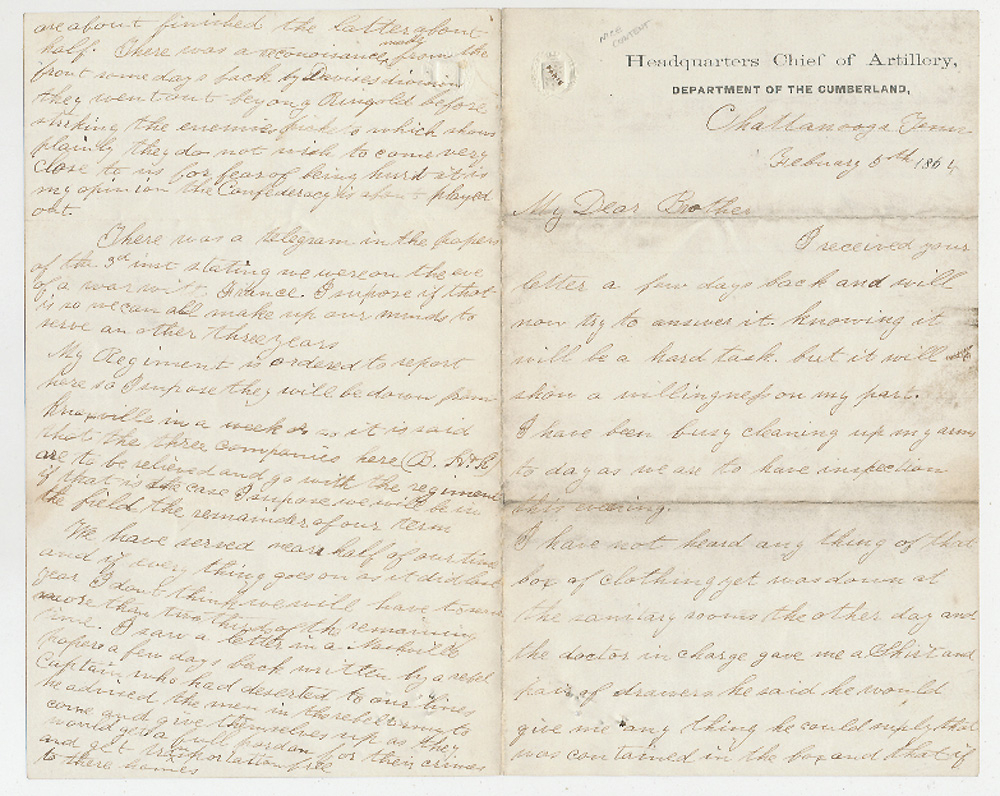 NICE
CONTENT
Headquarters Chief of Artillery,
DEPARTMENT OF THE CUMBERLAND,
Chattanooga Tenn
Febuary 5th 1864
My Dear Brother
I received your
letter a few days back and will
now try to answer it. knowing it
will be a hard task. but it will
show a willingness on my part.
I have been busy cleaning up my arms
to day as we are to have inspection
this evening.
I have not heard any thing of that
box of clothing yet was down at
the sanitary rooms the other day and
the doctor in charge gave me a Shirt and
pair of drawers he said he would
give me any thing he could suply that
was contained in the box and that if
are about finished the latter about
half. There was a reconoisance made from the
front some days back by Davises division
they went out beyong Ringold before
striking the enemies pickets which shows
plainly they do not wish to come very
close to us for fear of being hurd it is
my opinion the Confederacy is about played
out.
There was a telegram in the papers
of the 3d inst stating we were on the eve
of a war with France. I supose if that
is so we can all make up our minds to
serve an other three years
My Regiment is ordered to report
here so I supose they will be down from
Knoxville in a week or so it is said
that the three companies here (B. H. K)
are to be relieved and go with the regiment
if that is the case I supose we will be in
the field the remainder of our term
We have served near half of our time
and if every thing goes on as it did last
year I dont think we will have to serve
more than two thirds of the remaining
time. I saw a letter in a Nashville
papers a few days back written by a rebel
Captain who had deserted to our lines
he advised the men in the rebel army to
come and give themselves up as they
would get a full pardon for their crimes
and get transportation free
to there homes